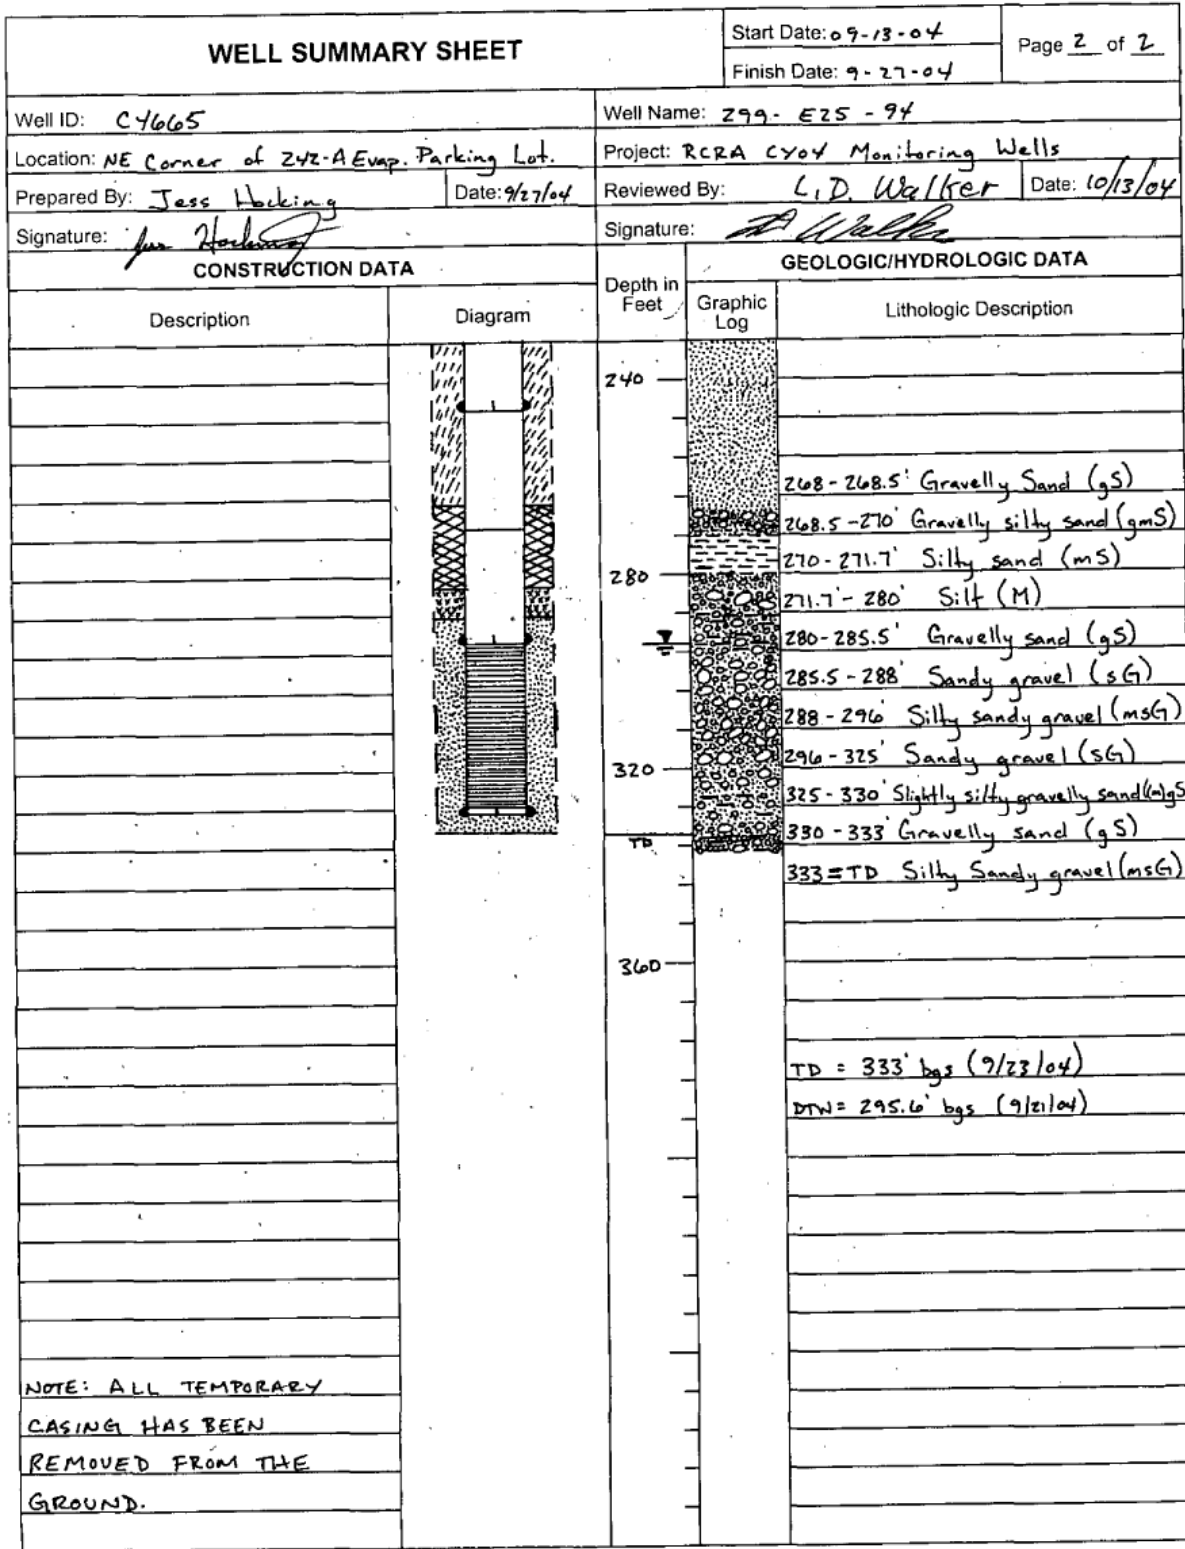 WELL SUMMARY SHEET
Start Date: 09-13-04
Finish Date: 9-27-04
Page 2 of 2
Well ID: C4665
Well Name: 299-E25-94
Location: NE Corner of 242-A Evap. Parking Lot.
Project: RCRA CY04 Monitoring Wells
Prepared By: Jess Hocking
Date: 9/27/04
Reviewed By: L.D. Walker
Date: 10/13/04
Signature: Jess Hocking
Signature: LD Walker
CONSTRUCTION DATA
Depth in Feet
GEOLOGIC/HYDROLOGIC DATA
Description
Diagram
Graphic Log
Lithologic Description
240
268-268.5' Gravelly Sand (gS)
268.5-270' Gravelly silty sand (gmS)
270-271.7' Silty sand (mS)
280
271.7'-280' Silt (M)
280-285.5' Gravelly sand (gS)
285.5-288' Sandy gravel (sG)
288-296' Silty sandy gravel (msG)
296-325' Sandy gravel (sG)
320
325-330' Slightly silty gravelly sand ((m)gS
330-333' Gravelly sand (gS)
TD
333=TD Silty Sandy gravel (msG)
360
TD = 333' bgs (9/23/04)
DTW = 295.6' bgs (9/21/04)
NOTE: ALL TEMPORARY
CASING HAS BEEN
REMOVED FROM THE
GROUND.